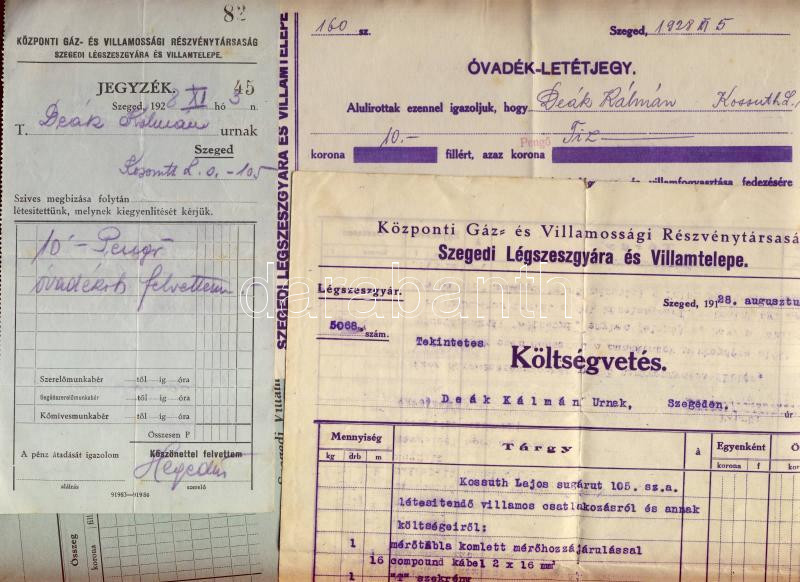 82
KÖZPONTI GÁZ- ÉS VILLAMOSSÁGI RÉSZVÉNYTÁRSASÁG
SZEGEDI LÉGSZESZGYÁRA ÉS VILLAMTELEPE.
JEGYZÉK. 45
Szeged, 1928 XI hó 5 n.
T. Deák Kálmán urnak
Szeged
Kossuth L. s. -105
Szíves megbizása folytán
létesitettünk, melynek kiegyenlitését kérjük.
10 - Pengő
óvadékot felvettem
Szerelőmunkabér —től —ig —óra
Segédszerelőmunkabér —től —ig —óra
Kőmivesmunkabér —től —ig —óra
Összesen P
A pénz átadását igazolom
Köszönettel felvettem
Hegedűs
aláirás
szerelő
91983—91984
Összeg
korona
SZEGEDI LÉGSZESZGYÁRA ÉS VILLAMTELEPE
160 sz.
Szeged, 1928 XI 5
ÓVADÉK-LETÉTJEGY.
Alulirottak ezennel igazoljuk, hogy Deák Kálmán Kossuth L.
korona 10.- fillért, azaz korona Pengő Tíz
és villamfogyasztása fedezésére
Központi Gáz- és Villamossági Részvénytársasá
Szegedi Légszeszgyára és Villamtelepe.
Légszeszgyár.
Szeged, 1928. augusztu
5068 szám.
Tekintetes
Költségvetés.
Deák Kálmán Urnak, Szegeden. úr
Mennyiség
kg drb m
Tárgy
à
Egyenként
korona f
Kossuth Lajos sugárut 105. sz.a.
létesitendő villamos csatlakozásról és annak
költségeiről:
1 mérőtábla komlett mérőhozzájárulással
16 compound kábel 2 x 16 mm²
1 "T" szekrény
darabanth